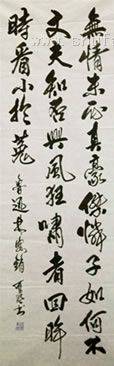 無情未必真豪傑憐子如何不
丈夫知否興風狂嘯者回眸
時看小於菟
魯迅